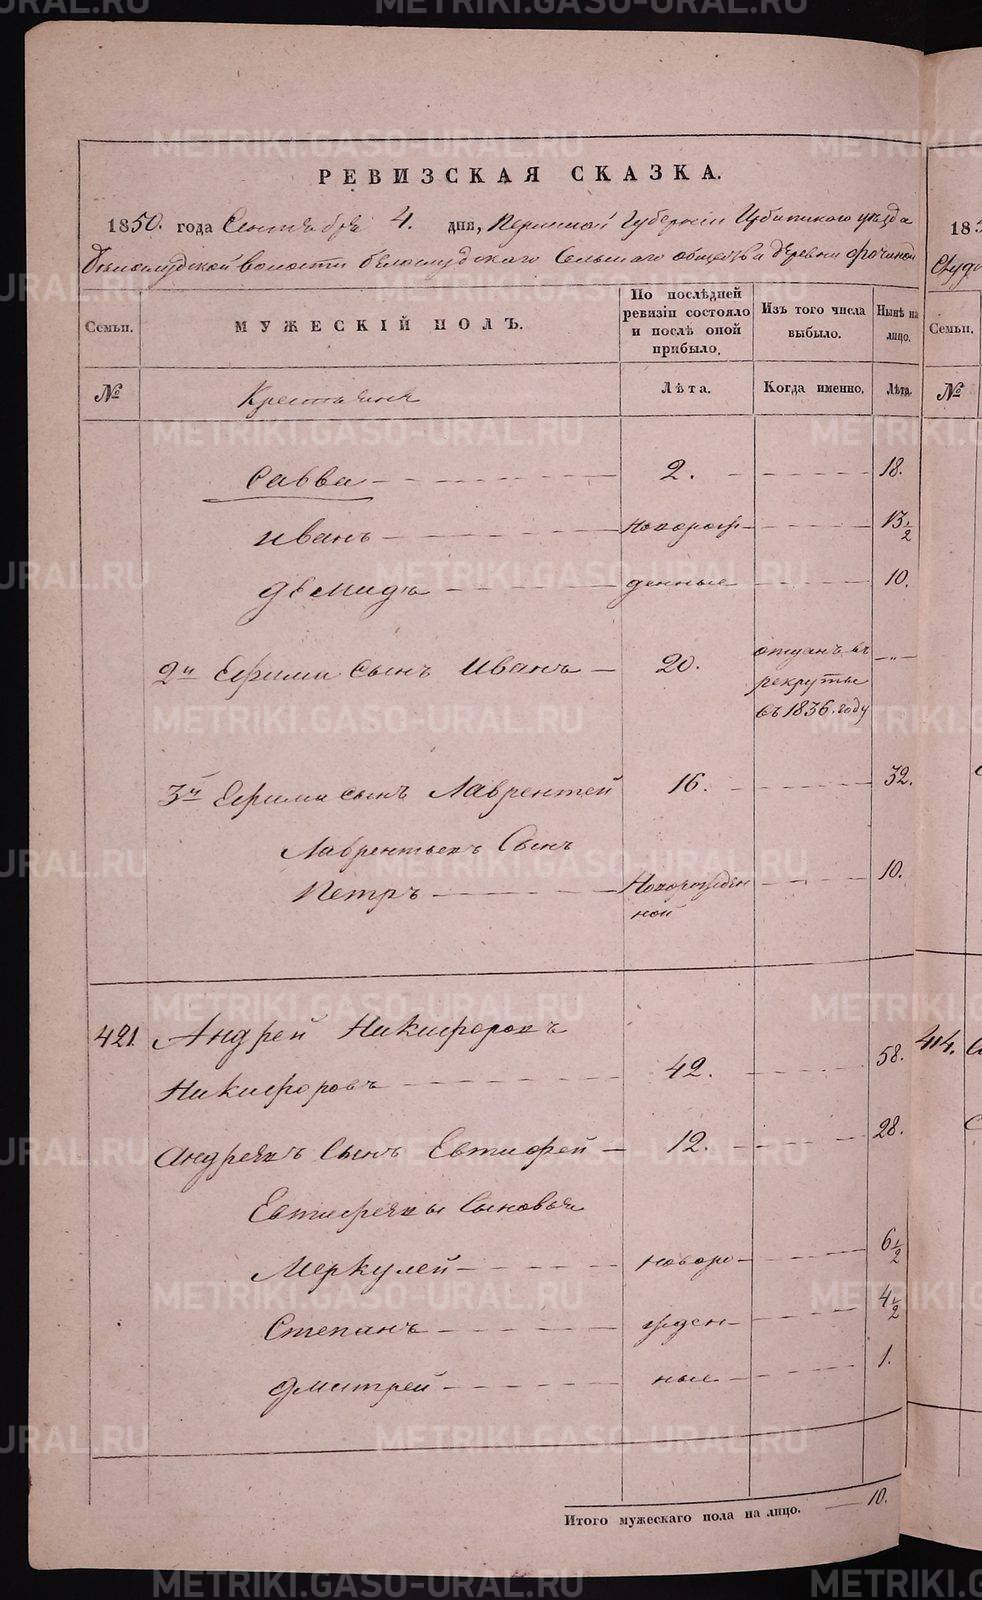 РЕВИЗСКАЯ СКАЗКА.
1850. года Сентября 4. дня, Пермской Губернiи Ирбитского уѣзда
Бѣлослудской волости Бѣлослудского Сельскаго общества деревни
Семьи.
МУЖЕСКІЙ ПОЛЪ.
По послѣдней ревизіи состояло и послѣ оной прибыло.
Изъ того числа выбыло.
Нынѣ на лицо.
№
Крестьяне
Лѣта.
Когда именно.
Лѣта.
Савва 2. 18.
Иванъ новорож- 13 1/2
Демидъ денные 10.
2й Ефима сынъ Иванъ 20. отданъ въ рекруты въ 1836. году
3й Ефима сынъ Лаврентей 16. 32.
Лаврентьевъ Сынъ
Петръ Новорожден ной 10.
421. Андрей Никифоровъ
Никифоровъ 42. 58.
Андреевъ Сынъ Евтифей 12. 28.
Евтифеевы Сыновья
Меркулей новоро- 6 1/2
Степанъ жден- 4 1/2
Дмитрей ные 1.
Итого мужескаго пола на лицо. 10.
185
Семьи.
№
414.
METRIKI.GASO-URAL.RU